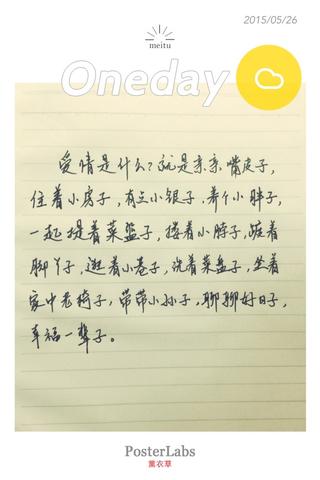 2015/05/26
meitu
Oneday
爱情是什么?就是亲亲嘴皮子,
住着小房子,有点小银子.养个小胖子,
一起提着菜篮子,搂着小脖子,踮着
脚丫子,逛着小巷子,洗着菜盘子,坐着
家中老椅子,带带小孙子,聊聊好日子,
幸福一辈子。
PosterLabs
薰衣草